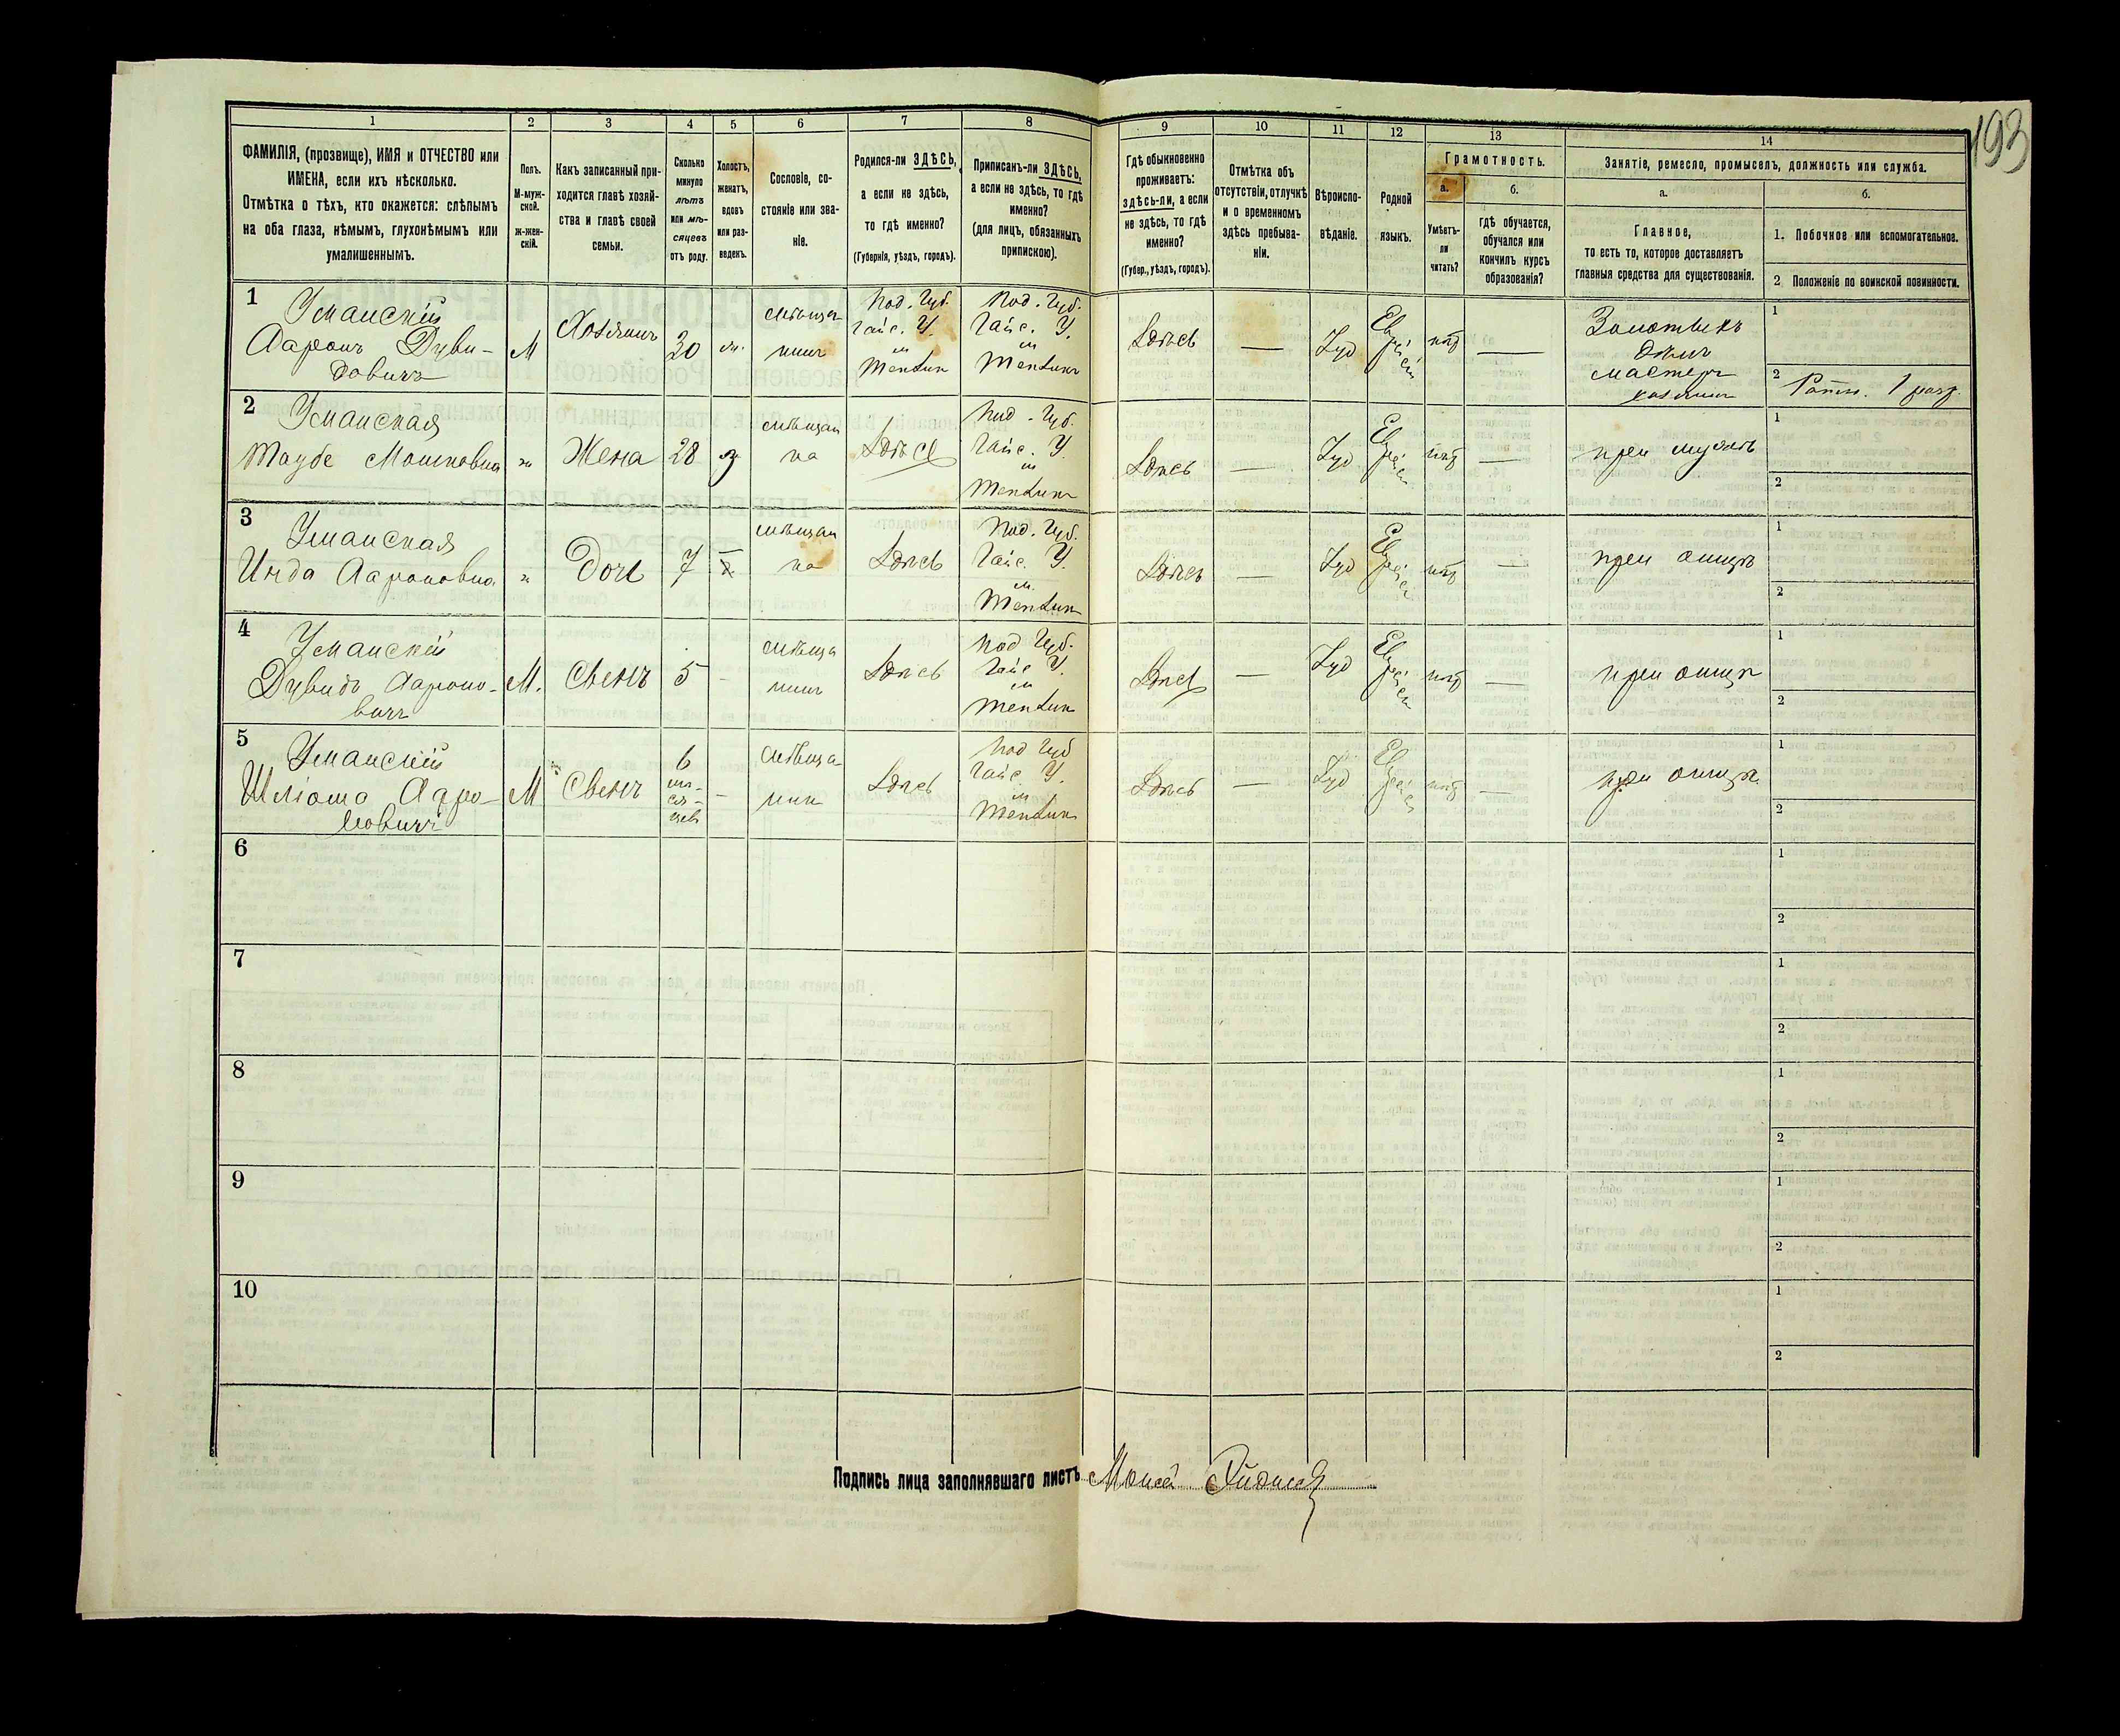 193
1 2 3 4 5 6 7 8 9 10 11 12 13 14
ФАМИЛІЯ, (прозвище), ИМЯ и ОТЧЕСТВО или
ИМЕНА, если ихъ нѣсколько.
Отмѣтка о тѣхъ, кто окажется: слѣпымъ
на оба глаза, нѣмымъ, глухонѣмымъ или
умалишеннымъ.
Полъ.
М-муж-
ской.
ж-жен-
скій.
Какъ записанный при-
ходится главѣ хозяй-
ства и главѣ своей
семьи.
Сколько
минуло
лѣтъ
или мѣ-
сяцевъ
отъ роду.
Холостъ,
женатъ,
вдовъ
или раз-
веденъ.
Сословіе, со-
стояніе или зва-
ніе.
Родился-ли ЗДѢСЬ,
а если не здѣсь,
то гдѣ именно?
(Губернія, уѣздъ, городъ).
Приписанъ-ли ЗДѢСЬ,
а если не здѣсь, то гдѣ
именно?
(для лицъ, обязанныхъ
припискою).
Гдѣ обыкновенно
проживаетъ:
здѣсь-ли, а если
не здѣсь, то гдѣ
именно?
(Губер., уѣздъ, городъ).
Отмѣтка объ
отсутствіи, отлучкѣ
и о временномъ
здѣсь пребыва-
ніи.
Вѣроиспо-
вѣданіе.
Родной
языкъ.
Грамотность.
а.
Умѣетъ-
ли
читать?
б.
Гдѣ обучается,
обучался или
кончилъ курсъ
образованія?
Занятіе, ремесло, промыселъ, должность или служба.
а.
Главное,
то есть то, которое доставляетъ
главныя средства для существованія.
б.
1. Побочное или вспомогательное.
2 Положеніе по воинской повинности.
1
Уманскій
Ааронъ Дуви-
довичъ
М
Хозяинъ
30
мѣща
нинъ
Под. Губ.
Гайс. У.
м
Под. Губ.
Гайс. У.
м
Здѣсь
—
Іуд
Еврейск
нѣт
—
мастеръ
хозяинъ
1
2
Ратн. 1 разр.
2
Уманская
Таубе Мошковна
ж
Жена
28
мѣщан
ка
Здѣсь
Под. Губ.
Гайс. У.
м
Здѣсь
—
Іуд
Еврейск
нѣт
—
при мужѣ
1
2
3
Уманская
Инда Аароновна
ж
Дочь
7
мѣщан
ка
Здѣсь
Под. Губ.
Гайс. У.
м
Здѣсь
—
Іуд
Еврейск
нѣт
—
при отцѣ
1
2
4
Уманскій
Дувидъ Аароно-
вичъ
М.
Сынъ
5
-
мѣща
нинъ
Здѣсь
Под Губ.
Гайс У.
м
Здѣсь
—
Іуд
Еврейск
нѣт
—
при отцѣ
1
2
5
Уманскій
Шліома Ааро-
новичъ
М
Сынъ
6
мѣ-
ся-
цев
-
мѣща
нин
Здѣсь
Под Губ
Гайс У.
м
Здѣсь
—
Іуд
Еврейск
нѣт
—
при отцѣ
1
2
6
1
2
7
1
2
8
1
2
9
1
2
10
1
2
Подпись лица заполнявшаго листъ Моисей